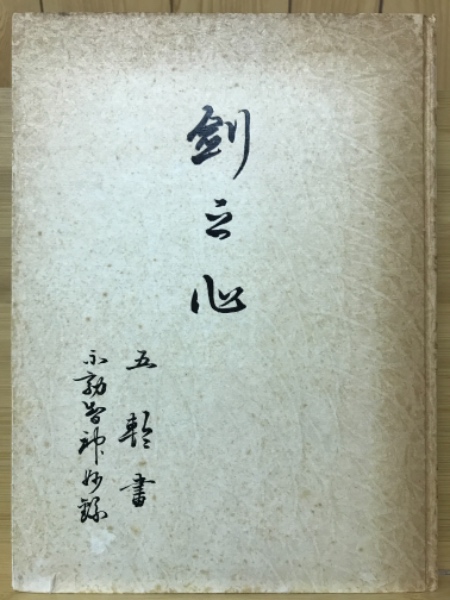 剣之心
五輪書
不動智神妙録